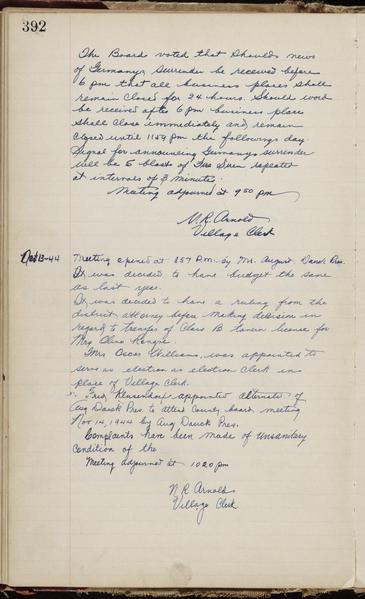 392
The Board voted that should news
of Germany's surrender be received before
6 pm that all business places shall
remain closed for 24 hours. Should word
be received after 6 pm business places
shall close immediately and remain
closed until 1159 pm the following day
Signal for announcing Germany's surrender
will be 5 blasts of Fire Siren repeated
at intervals of 3 minutes.
Meeting adjourned at 950 pm
N.R. Arnold
Village Clerk
Nov 13-44
Meeting opened at 857 P.m. by Mr. August Danck Pres.
It was decided to have budget the same
as last year.
It was decided to have a ruling from the
district attorney before making decision in
regards to transfer of Class B tavern license for
Mrs
Mrs Oscar Williams, was appointed to
serve as election as election Clerk in
place of Village Clerk.
Fred appointed alternate of
Aug Danck Pres. to attend County board meeting
Nov 14, 1944 by Aug Danck Pres.
Complaints have been made of unsanitary
condition of the
Meeting adjourned at 1020 pm
N.R. Arnold
Village Clerk